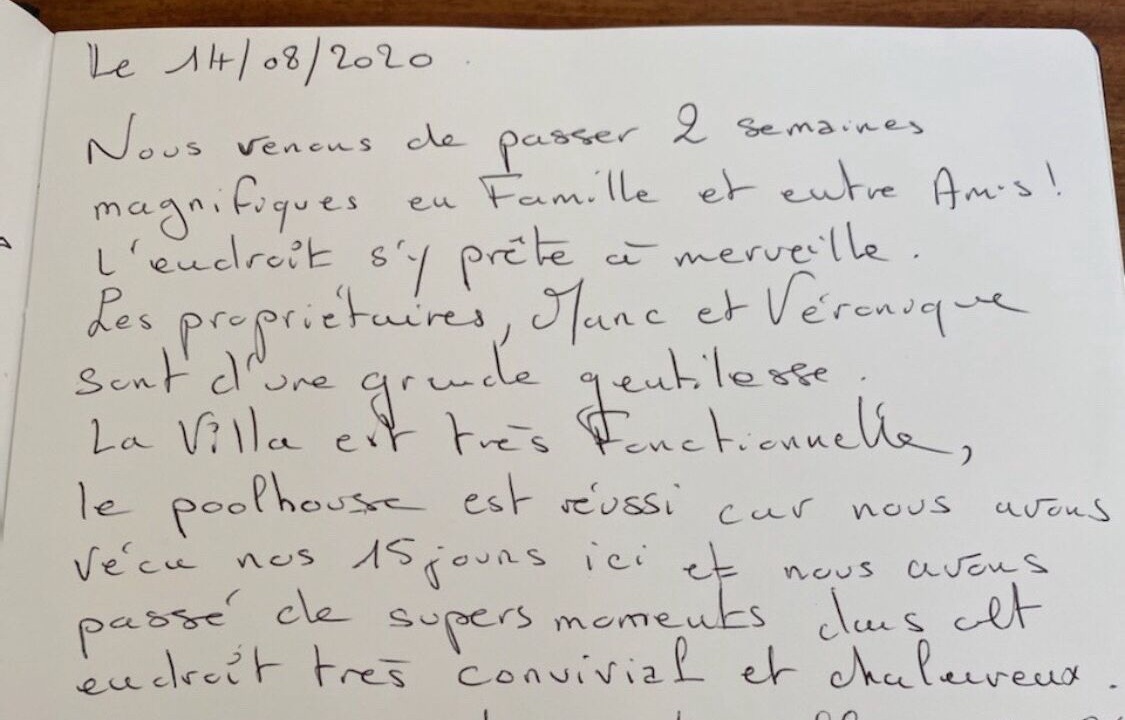 Le 14/08/2020.
Nous venons de passer 2 semaines
magnifiques en Famille et entre Amis!
L'endroit s'y prête à merveille.
Les propriétaires, Marc et Véronique
sont d'une grande gentillesse.
La Villa est très Fonctionnelle,
le poolhouse est réussi car nous avons
vécu nos 15 jours ici et nous avons
passé de supers moments dans cet
endroit très convivial et chaleureux.